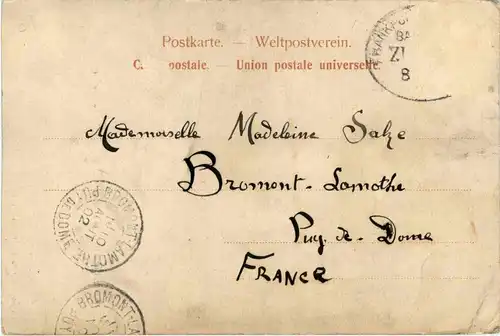 Postkarte. — Weltpostverein.
C. postale. — Union postale universelle.
Mademoiselle Madeleine Salze
Bromont-Lamothe
Puy-de-Dome
FRANCE
BROMONT-LAMOTHE
PUY DE DOME
10
AOUT
02
BROMONT-LA